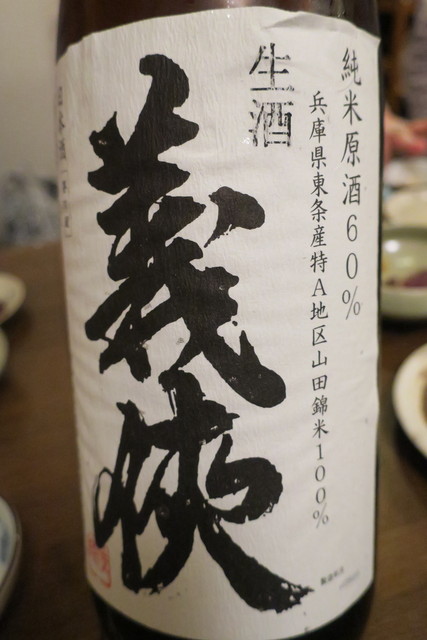 純米原酒60%
兵庫県東条産特A地区山田錦米100%
生酒
義侠
日本酒